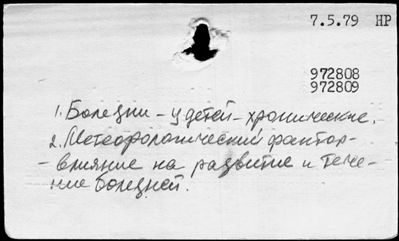 7.5.79 НР
972808
972809
1. Болезни - у детей - хронические.
2. Метеорологический фактор -
- влияние на развитие и тече-
ние болезней.